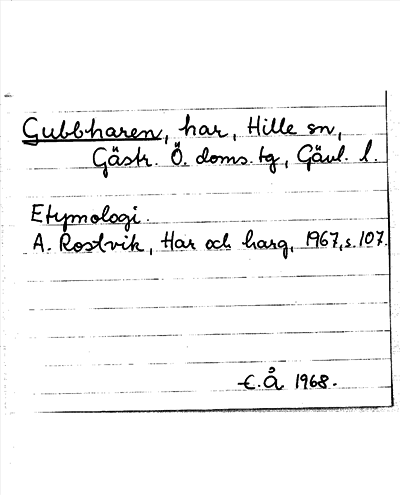 Gubbharen, har, Hille sn,
Gästr. Ö. doms. tg, Gävl. l.
Etymologi.
A. Rostvik, Har och harg, 1967, s. 107.
E.Å 1968.